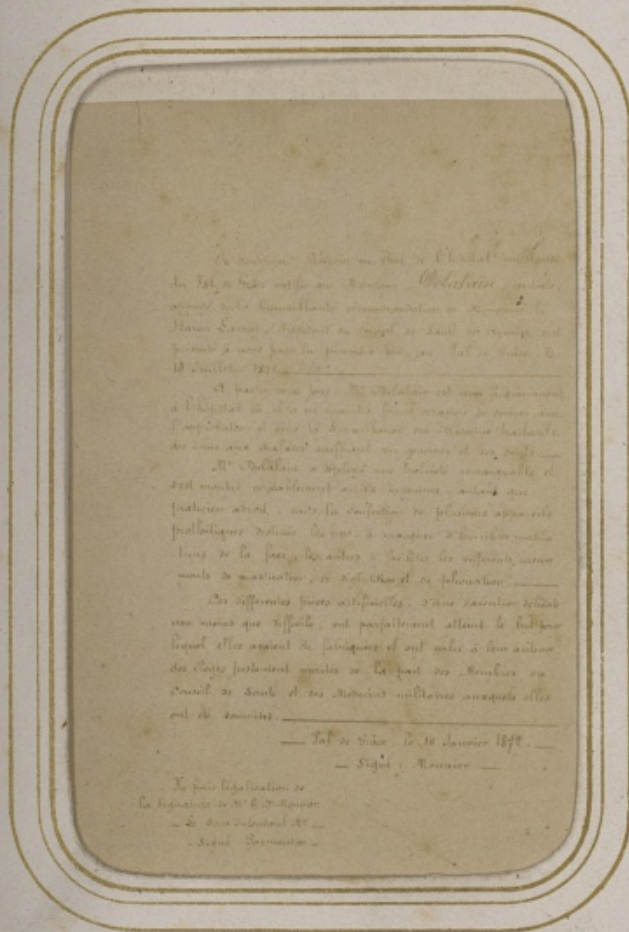 Le médecin en chef de l'hôpital militaire
du Val de Grâce certifie que Monsieur Delalain, artiste,
appuyé de la bienveillante recommandation de Monsieur le
Baron Larrey, Président du Conseil de Santé des armées, s'est
présenté à nous pour la première fois, au Val de Grâce, le
18 Juillet 1871.
A partir de ce jour, Mr Delalain est venu fréquemment
à l'hôpital où il a eu maintes fois l'occasion de donner, avec
l'approbation et sous la surveillance des Médecins traitants,
des soins aux malades souffrant des gencives et des dents.
Mr Delalain a déployé une habileté remarquable et
s'est montré artiste autant que
praticien adroit, dans la confection de plusieurs appareils
prothétiques destinés les uns à masquer d'horribles mutila
tions de la face, les autres à faciliter les différents mouve
ments de mastication, de déglutition et de phonation.
Ces différentes pièces artificielles, d'une exécution délicate
non moins que difficile, ont parfaitement atteint le but pour
lequel elles avaient été fabriquées et ont valu à leur auteur
des éloges justement mérités de la part des Membres du
Conseil de Santé et des Médecins militaires auxquels elles
ont été soumises.
Val de Grâce, le 16 Janvier 1872.
Signé : Mounier
Vu pour légalisation de
la signature de Mr Mounier
Le Sous-intendant Mre
Signé